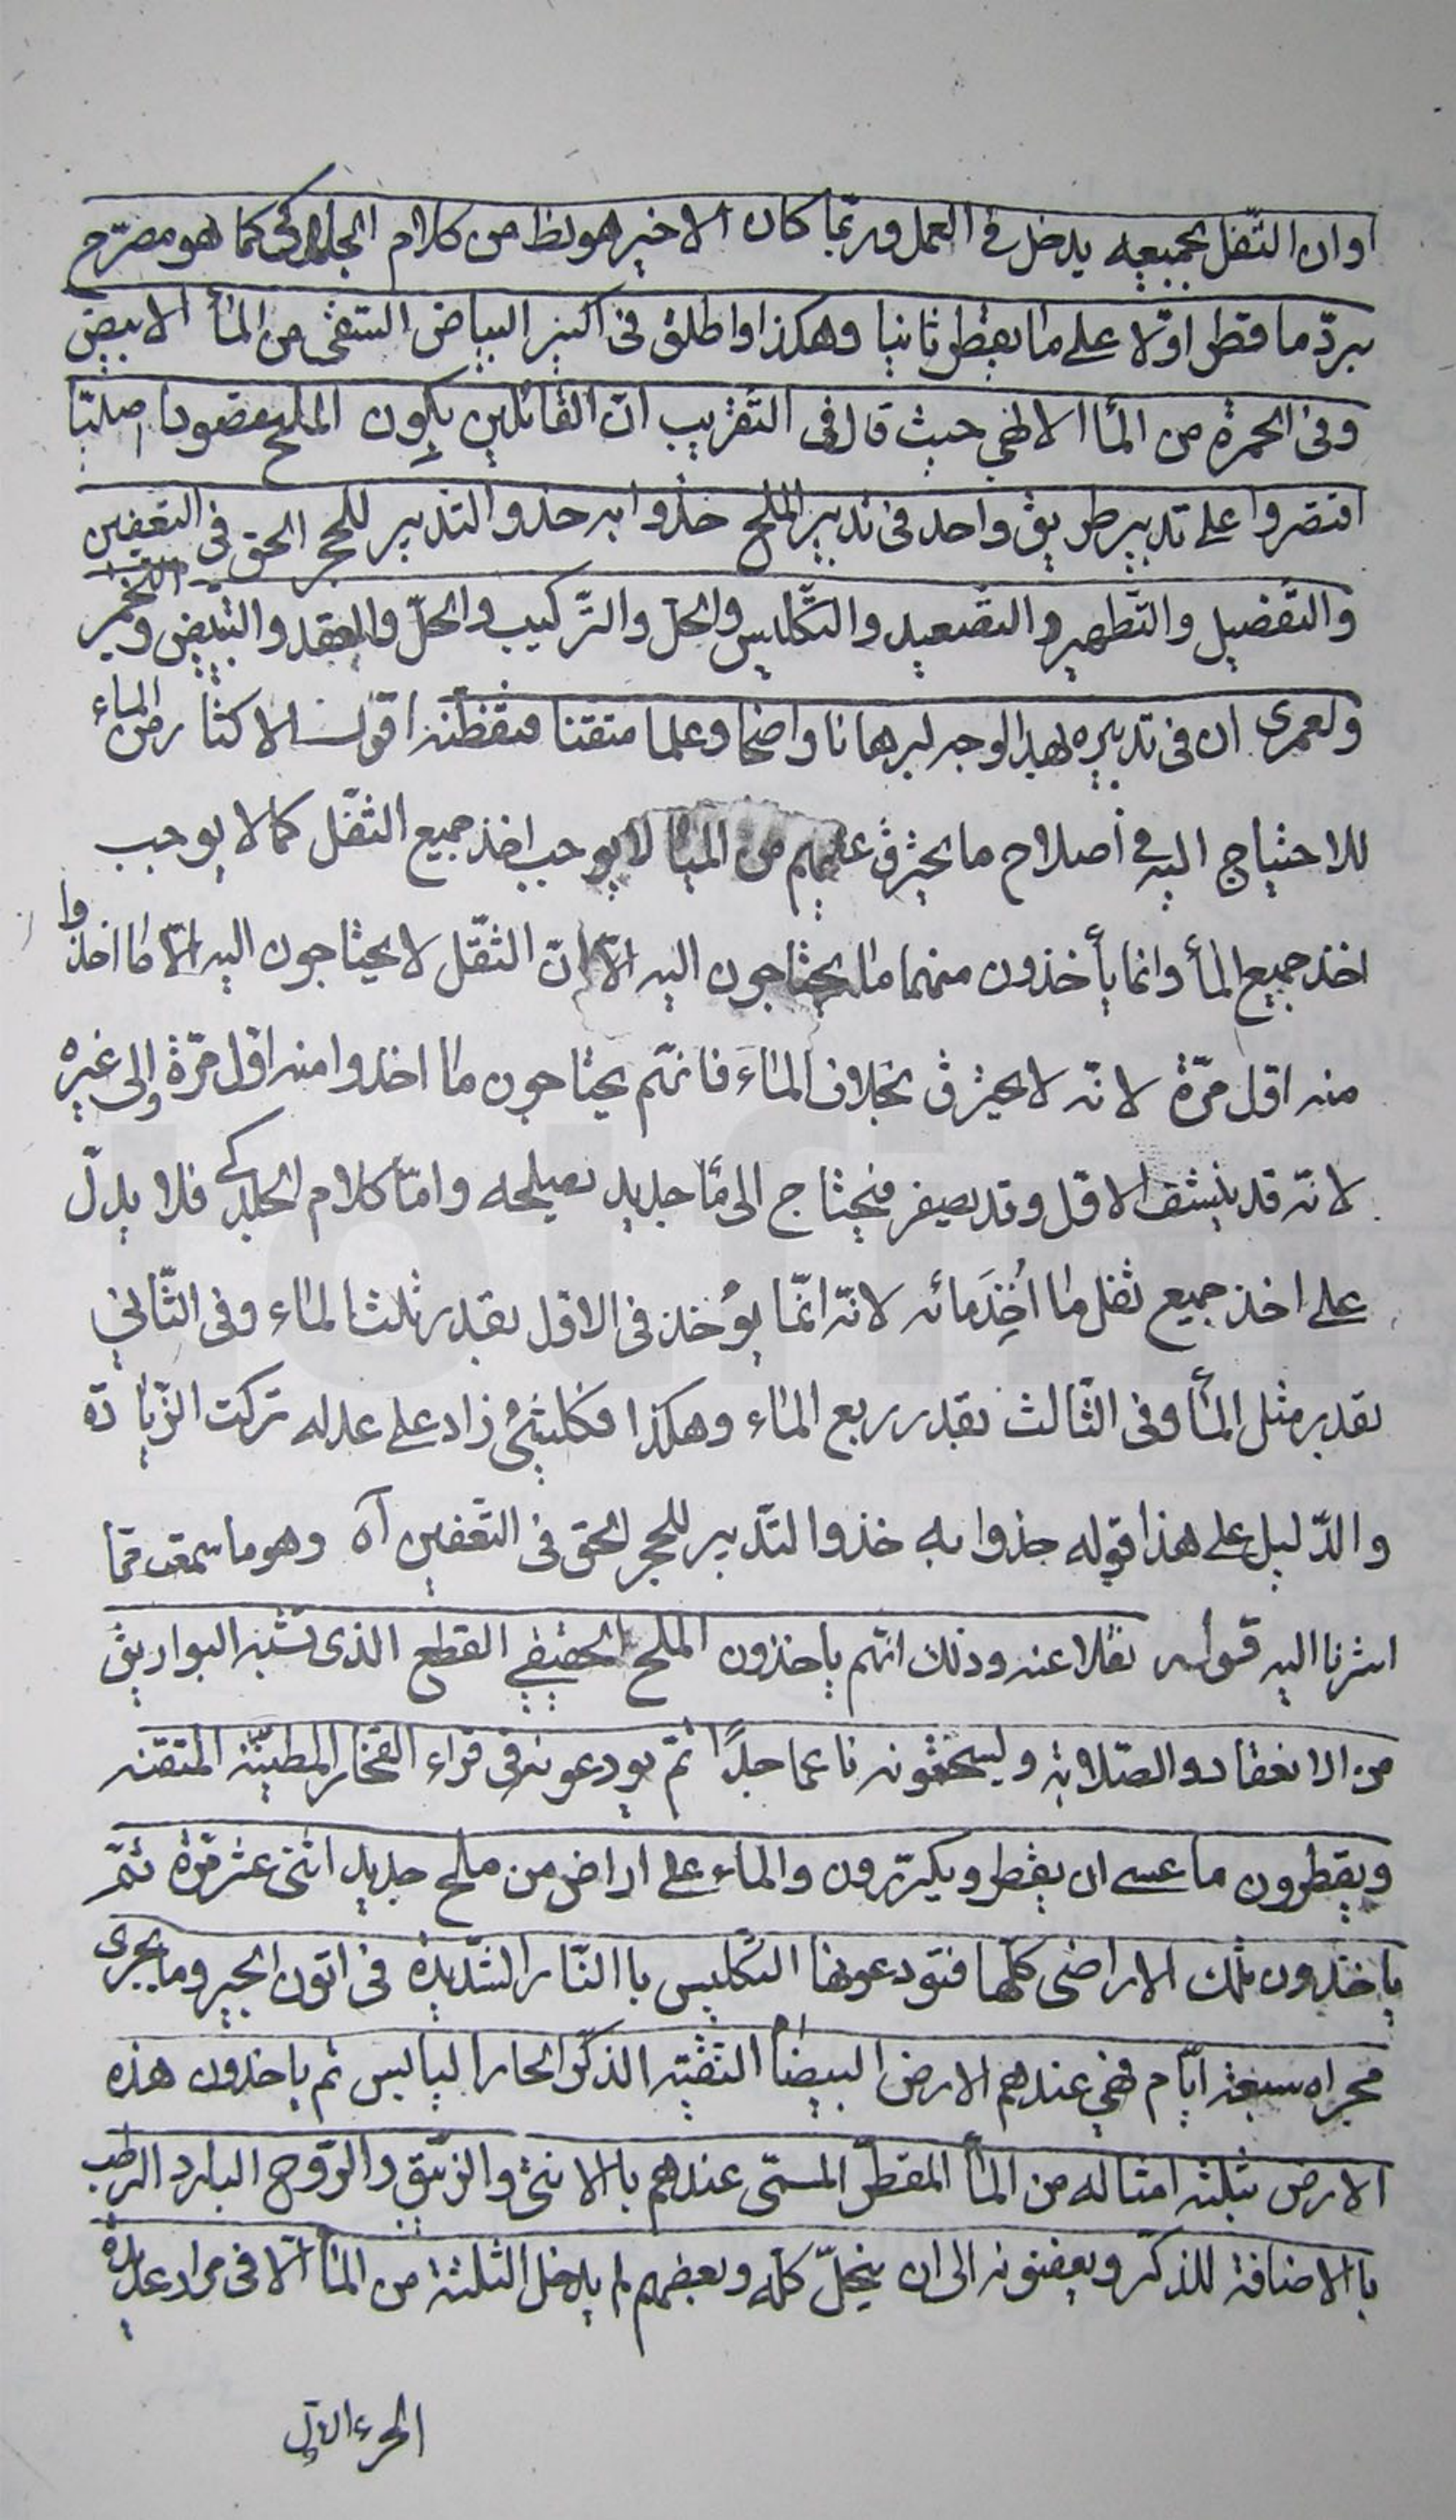 او ان الثّفل بجميعه يدخل فى العمل وربّما كان الاخير هو من كلام الجلدكى كما هو مصرّح
بردّ ما قطر اوّلا على ما يقطر ثانيا وهكذا واطلق فى اكثر البياض من المأ الابيض
وفى الحمرة من المأ حيث قال فى التقريب انّ القائلين بكون الملح مقصودا اصليّا
اقتصروا على تدبير طريق واحد فى تدبير الملح حذوا به حذو التدبير للحجر الحق فى التعفين
والتفصيل والتّطهير والتصعيد والتّكليس والحلّ والتّركيب والحلّ والعقد والتبيض والتخمير
ولعمرى ان فى تدبيره بهذا الوجه لبرهانا واضحا وعلما متقنا اقول الاكثار من الماء
للاحتياج اليه فى اصلاح ما يحترق عليهم من المياه لا يوجب اخذ جميع الثفّل كما لا يوجب
اخذ جميع المأ وانما يأخذون منهما ما يحتاجون اليه الّا انّ الثفّل لا يحتاجون اليه الّا ما اخذوا
منه اوّل مرّة لانّه لا يحترق بخلاف الماء فانّهم يحتاجون ما اخذوا منه اوّل مرّة والى غيره
لانّه قد ينشف الاوّل وقد يصفر فيحتاج الى مأ جديد يصلحه وامّا كلام الجلدكى فلا يدلّ
على اخذ جميع ثفل ما اُخِذَ مائه لانّه انّما يؤخذ فى الاوّل بقدر ثلث الماء وفى الثّانى
بقدر مثل المأ وفى الثّالث بقدر ربع الماء وهكذا فكلّ شئ زاد على عدله تركت الزّيادة
والدّليل على هذا قوله حذوا به حذو التّدبير للحجر الحق فى التّعفين آه وهو ما سمعت ممّا
اشرنا اليه قوله نقلا عنه وذلك انّهم ياخذون الملح القطع الذى تشبه البواريق
من الانعقاد والصّلابة ويسحقونه ناعما جدًّا ثمّ يودعونه فى قراء الفخار المطيّنه المتقنه
ويقطرون ما عسى ان يقطر ويكرّرون والماء على اراض من ملح جديد اثنى عشر مرّة ثمّ
ياخذون تلك الاراضى كلّها فتودعونها التّكليس باالنّار الشّديدة فى اتون الجير وما يجرى
مجراه سبعة ايّام فهى عندهم الارض البيضأ النّقيّه الذّكر الحار اليابس ثم ياخذون هذه
الارض بثلثه امثاله من المأ المقطّر المسمّى عندهم باالانثى والزّيبق والرّوح البارد الرطب
باالاضافة للذّكر ويعفنونه الى ان ينحلّ كلّه وبعضهم لم يدخل الثلثة من المأ الّا فى مرار عديدة
الجزء الاوّل